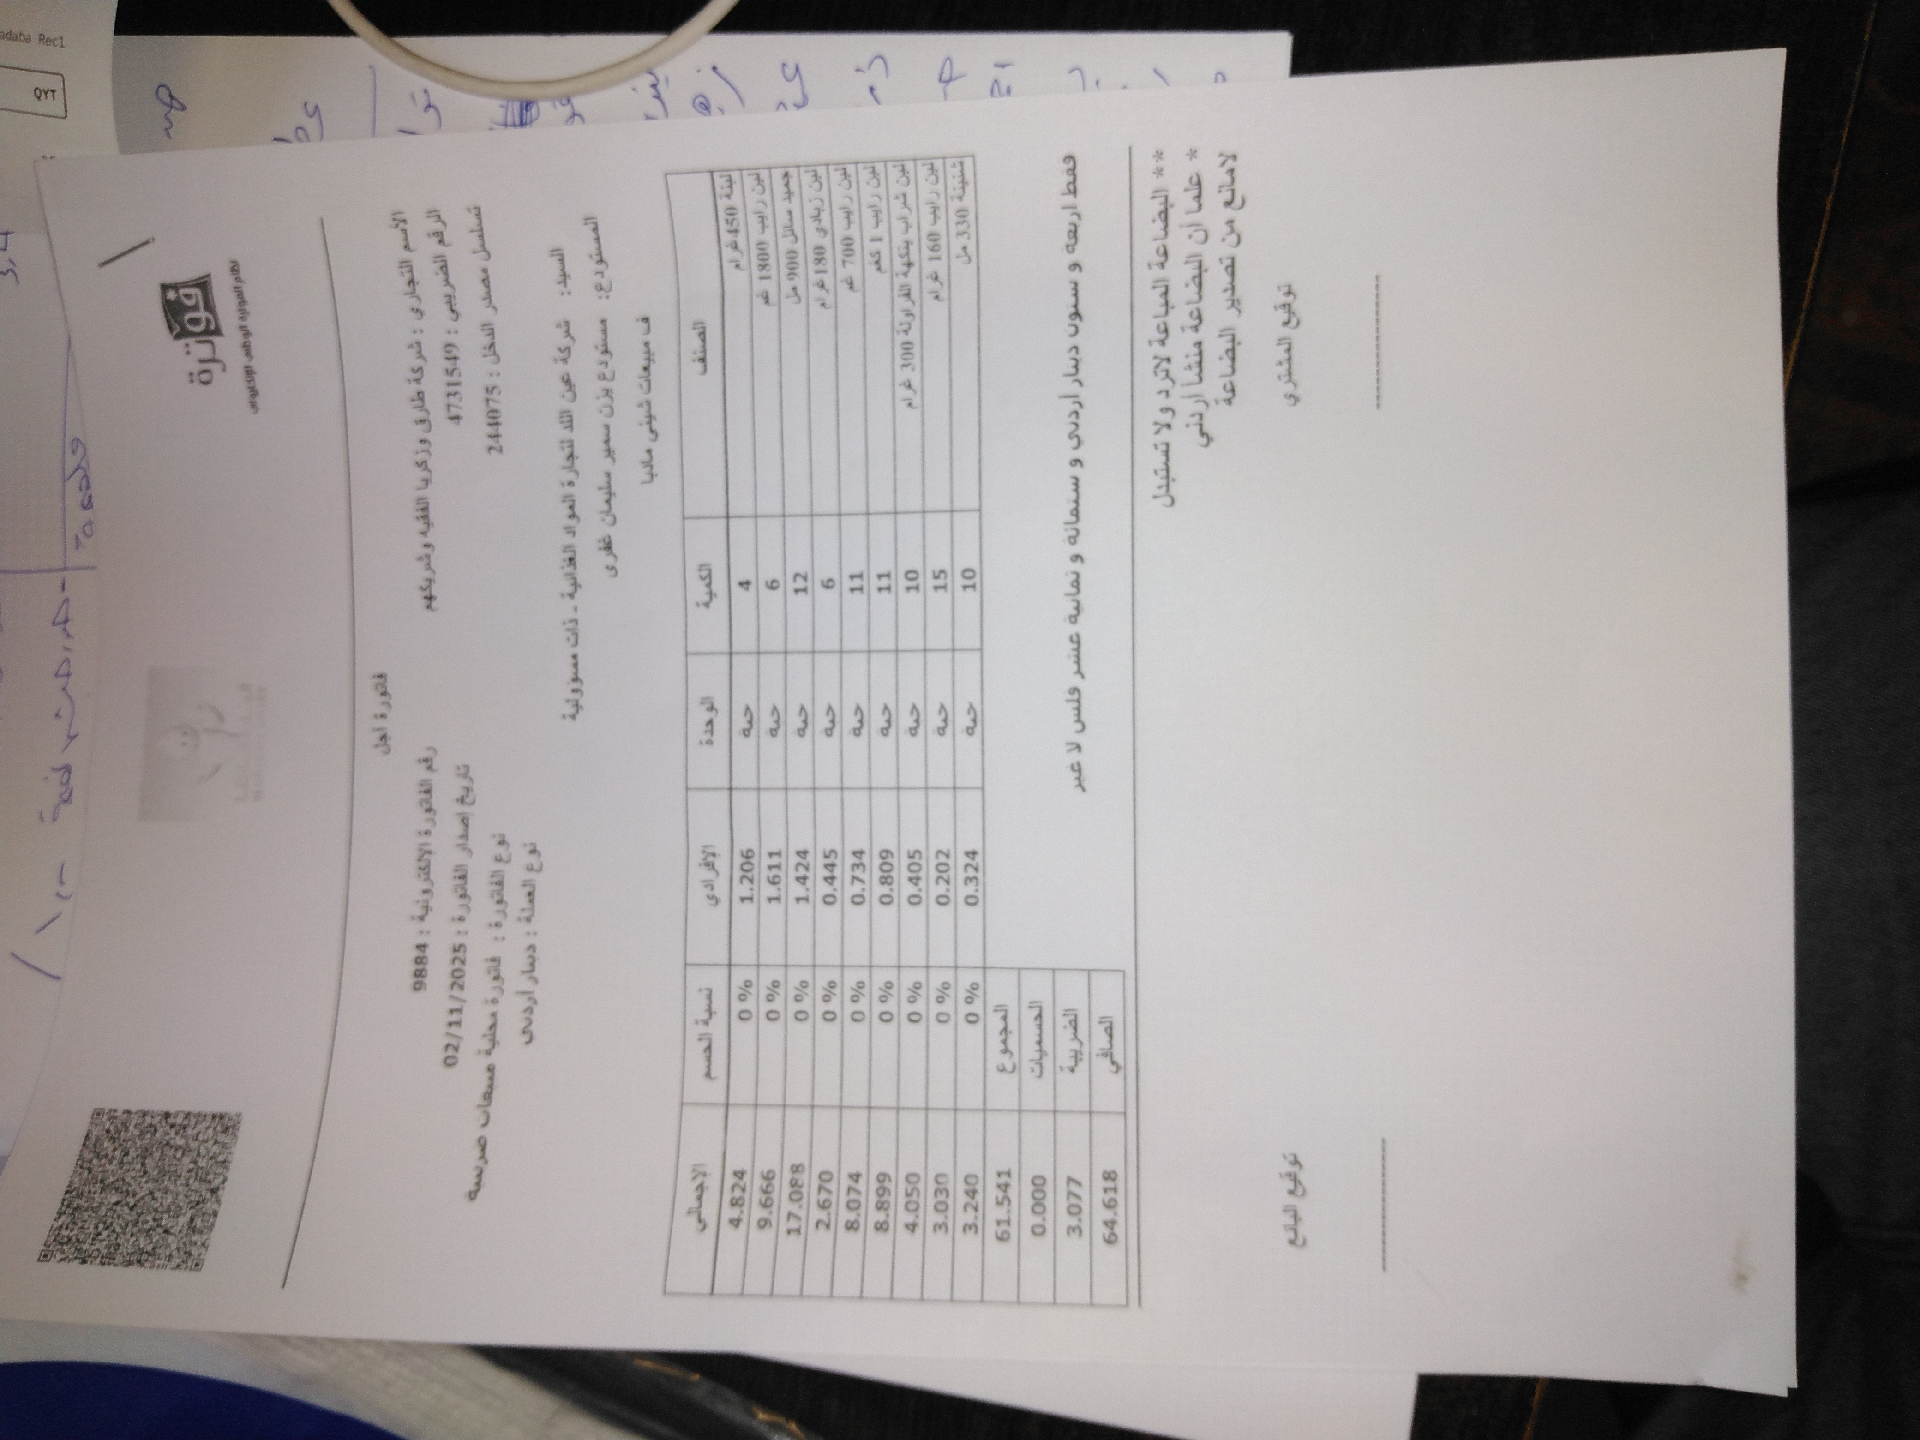 فوترة
نظام الفوترة الوطني الإلكتروني
فاتورة اجل
الأسم التجاري : شركة طارق وزكريا الفقيه وشريكهم
الرقم الضريبي : 4731549
تسلسل مصدر الدخل : 244075
رقم الفاتورة الإلكترونية : 9884
تاريخ إصدار الفاتورة : 02/11/2025
نوع الفاتورة : فاتورة محلية مبيعات ضريبية
نوع العملة : دينار اردني
السيد: شركة عين اللد لتجارة المواد الغذائية - ذات مسؤولية
المستودع: مستودع يزن سمير سليمان غفري
ف مبيعات شيني مادبا
الصنف الكمية الوحدة الإفرادي نسبة الحسم الإجمالي
لبنة 450 غرام 4 حبة 1.206 0 % 4.824
لبن رايب 1800 غم 6 حبة 1.611 0 % 9.666
جميد سائل 900 مل 12 حبة 1.424 0 % 17.088
لبن زبادي 180 غرام 6 حبة 0.445 0 % 2.670
لبن رايب 700 غم 11 حبة 0.734 0 % 8.074
لبن رايب 1 كغم 11 حبة 0.809 0 % 8.899
لبن شراب بنكهة الفراولة 300 غرام 10 حبة 0.405 0 % 4.050
لبن رايب 160 غرام 15 حبة 0.202 0 % 3.030
شنينة 330 مل 10 حبة 0.324 0 % 3.240
المجموع 61.541
الحسميات 0.000
الضريبة 3.077
الصافي 64.618
فقط اربعة و ستون دينار اردني و ستمائة و ثمانية عشر فلس لا غير
** البضاعة المباعة لاترد ولا تستبدل
* علما أن البضاعة منشا اردني
لامانع من تصدير البضاعة
توقيع المشتري
توقيع البائع
adaba Rec1
QYT